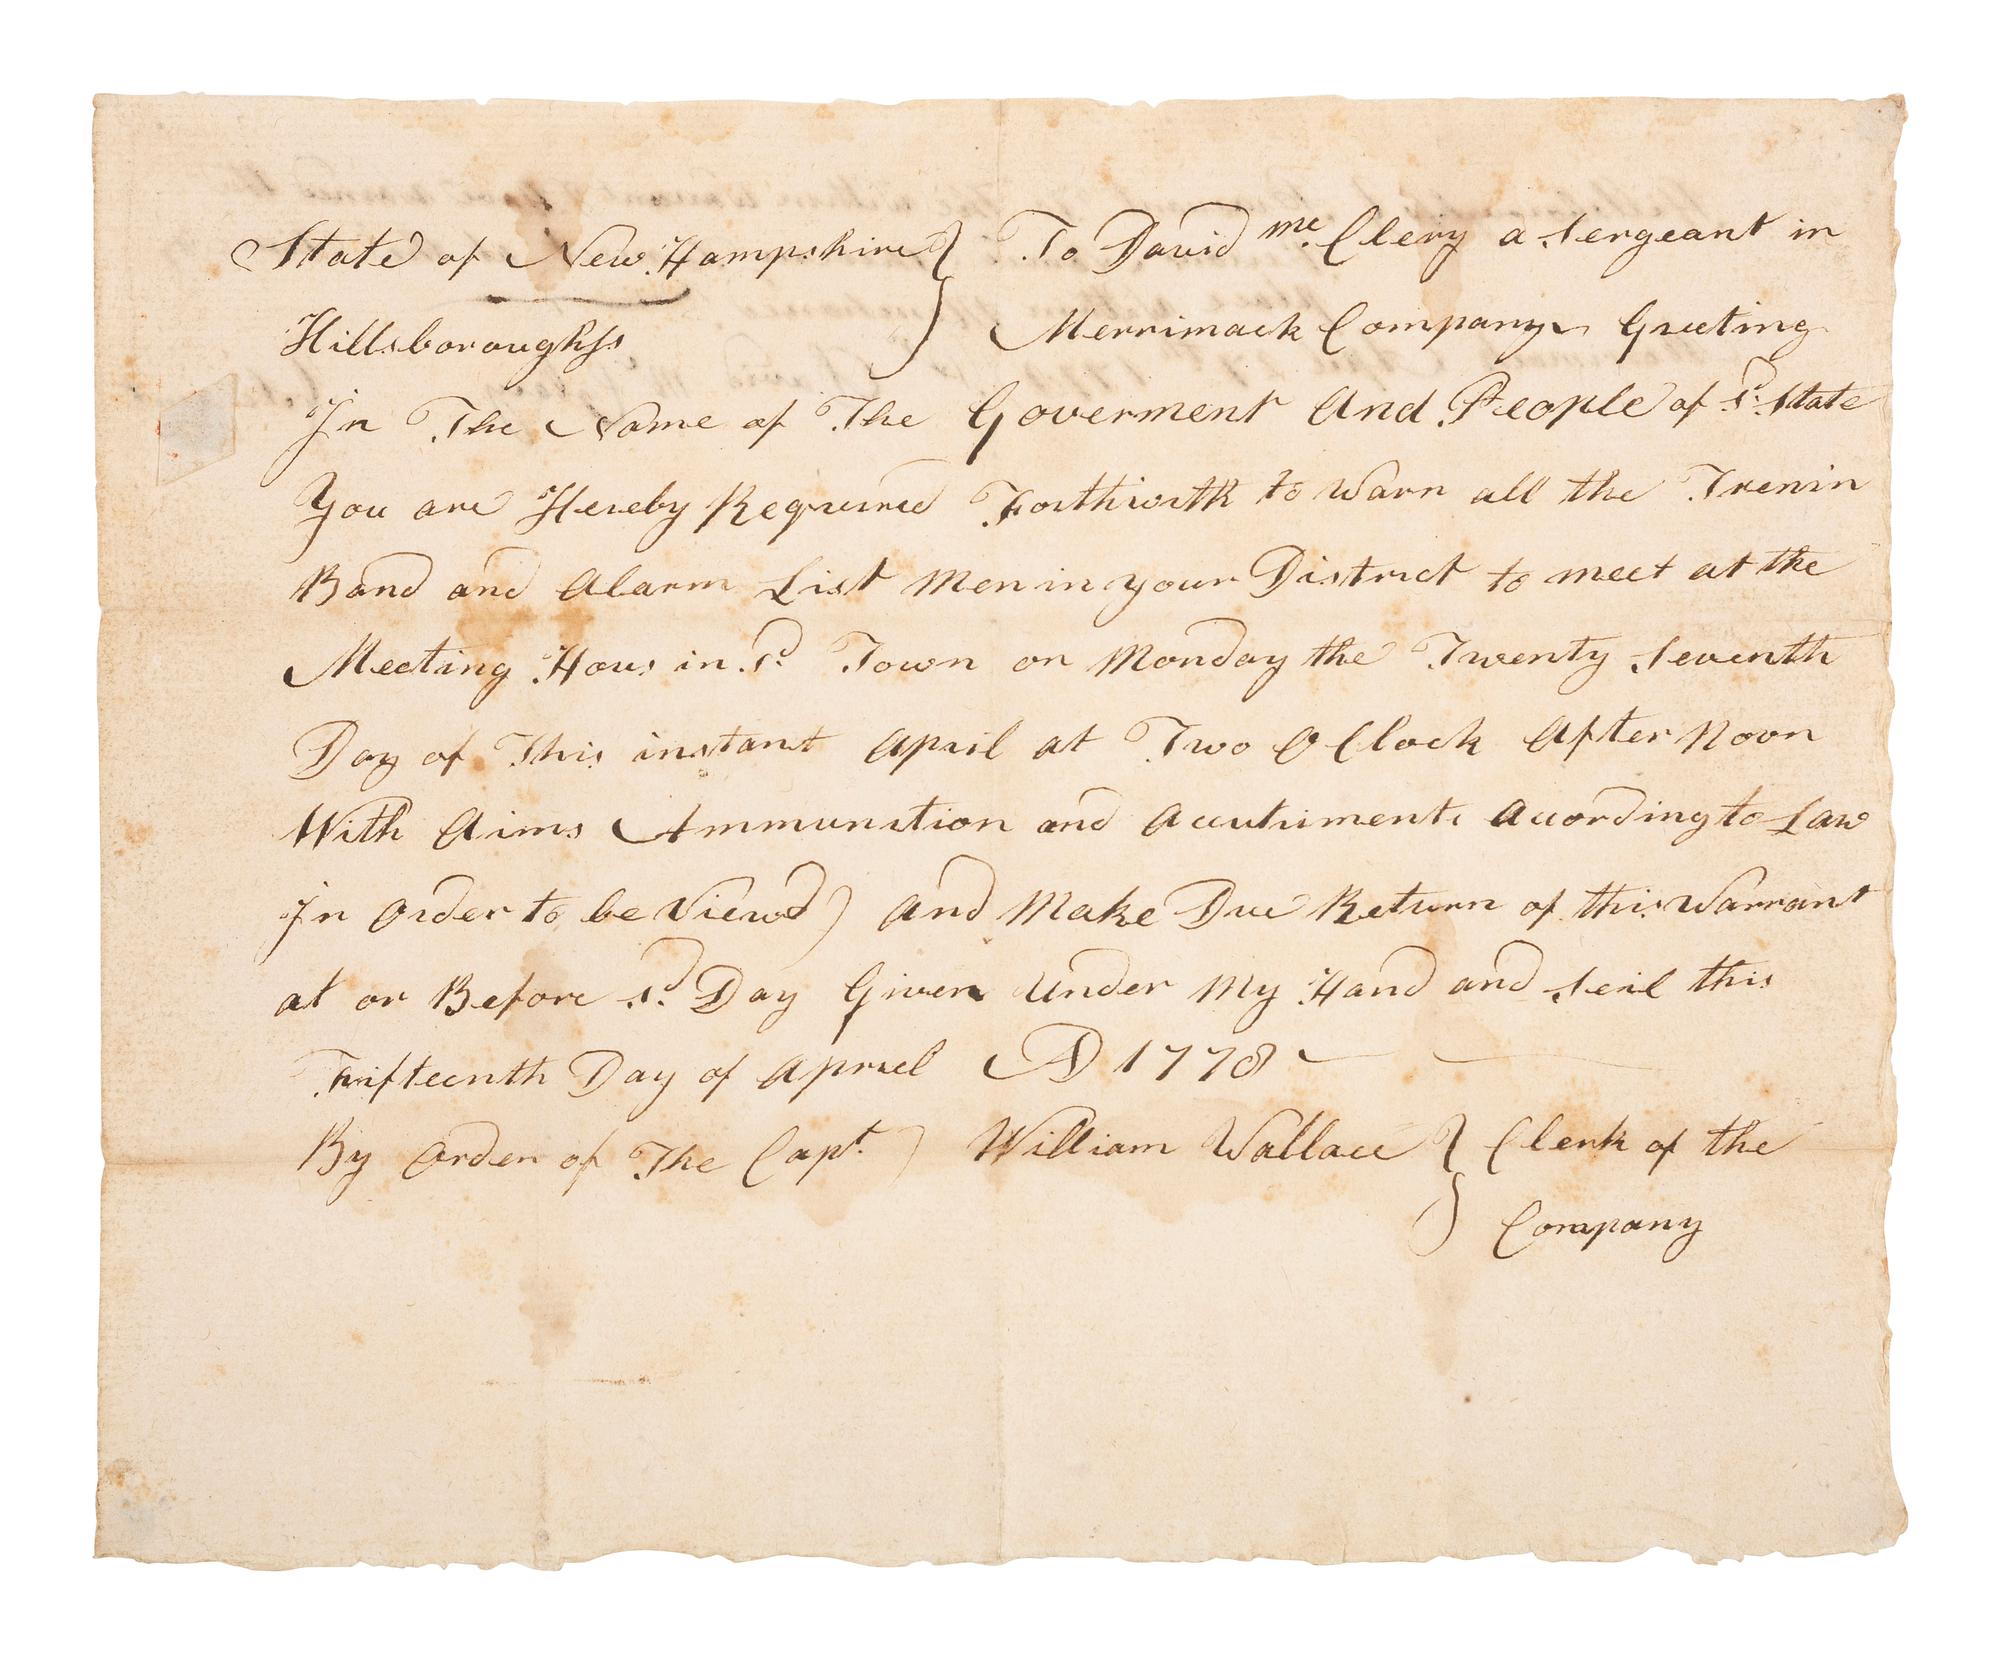 State of New Hampshire } To David Mc Clery a Sergeant in
Hillsborough ss } Merrimack Company Greeting
In The Name of The Goverment And People of sd State
You are Hereby Required Forthwith to Warn all the Trenin
Band and Alarm List Men in your District to meet at the
Meeting Hous in sd Town on Monday the Twenty Seventh
Day of This instant April at Two O Clock After Noon
With Arms Ammunition and Accutriments According to Law
In Order to be Viewd) And Make Due Return of this Warrant
at or Before sd Day Given Under My Hand and Seil this
Fifteenth Day of Apriel AD 1778
By Order of The Capt. ) William Wallace } Clerk of the
Company